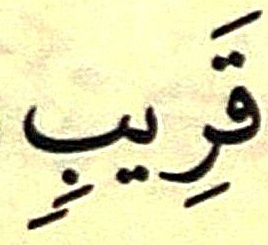 قَرِيبِ